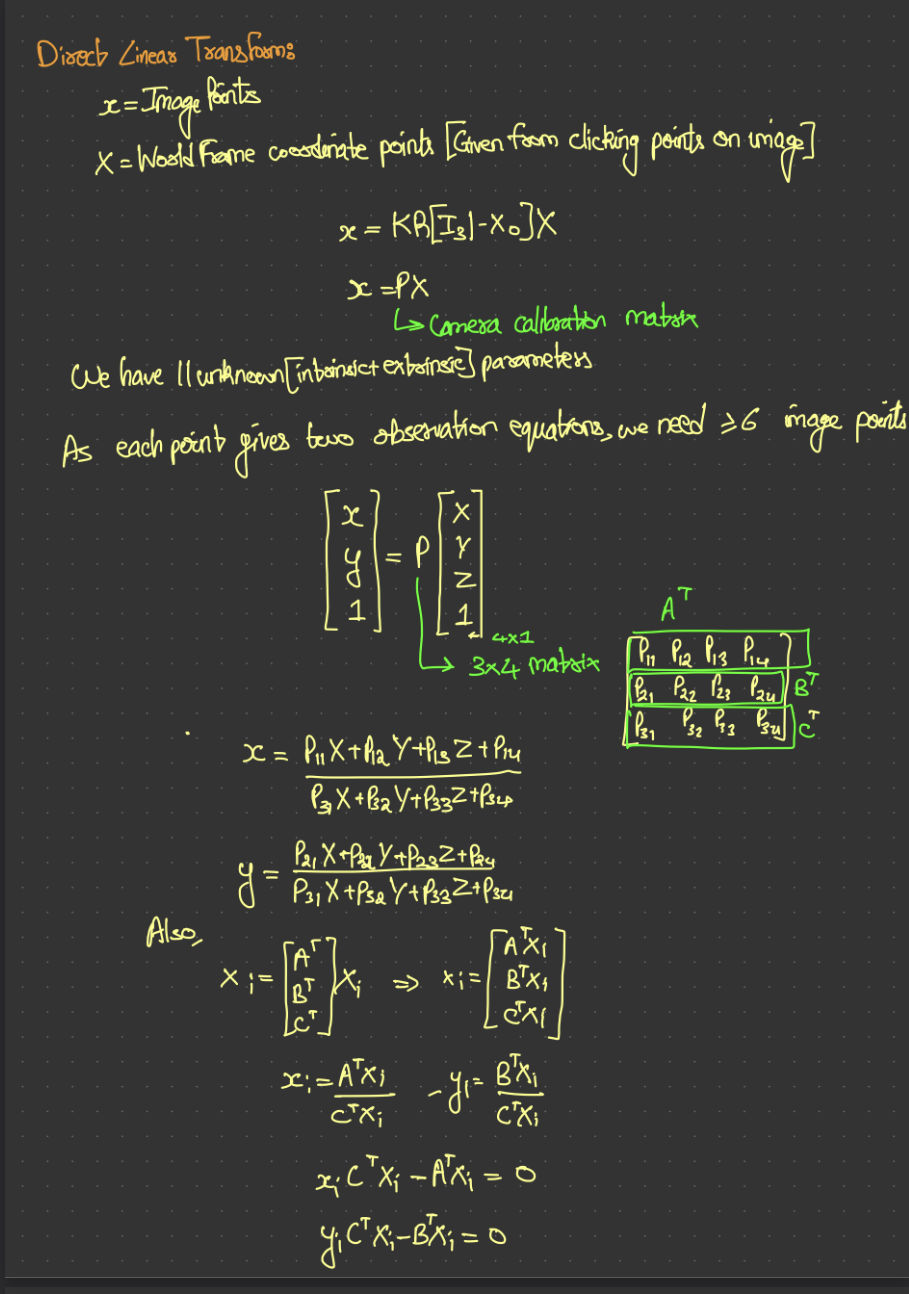 Direct Linear Transforms
x = Image Points
X = World Frame coordinate points [Given from clicking points on image]
x = KR[I₃|-X₀]X
x = PX
↳ Camera calibration matrix
We have 11 unknown [intrinsic+extrinsic] parameters
As each point gives two observation equations, we need ≥6 image points
[x y 1] = P [X Y Z 1] 4x1
→ 3x4 matrix
Aᵀ
P₁₁ P₁₂ P₁₃ P₁₄
P₂₁ P₂₂ P₂₃ P₂₄ Bᵀ
P₃₁ P₃₂ P₃₃ P₃₄ Cᵀ
x = P₁₁X+P₁₂Y+P₁₃Z+P₁₄
P₃₁X+P₃₂Y+P₃₃Z+P₃₄
y = P₂₁X+P₂₂Y+P₂₃Z+P₂₄
P₃₁X+P₃₂Y+P₃₃Z+P₃₄
Also,
xᵢ = [Aᵀ Bᵀ Cᵀ] Xᵢ ⇒ xᵢ = [AᵀXᵢ BᵀXᵢ CᵀXᵢ]
xᵢ = AᵀXᵢ / CᵀXᵢ - yᵢ = BᵀXᵢ / CᵀXᵢ
xᵢCᵀXᵢ - AᵀXᵢ = 0
yᵢCᵀXᵢ - BᵀXᵢ = 0